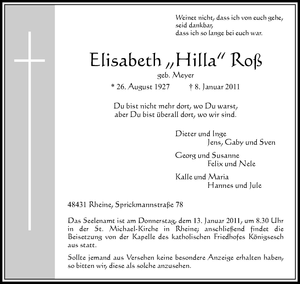 Weinet nicht, dass ich von euch gehe,
seid dankbar,
dass ich so lange bei euch war.
Elisabeth „Hilla“ Roß
geb. Meyer
* 26. August 1927 † 8. Januar 2011
Du bist nicht mehr dort, wo Du warst,
aber Du bist überall dort, wo wir sind.
Dieter und Inge
Jens, Gaby und Sven
Georg und Susanne
Felix und Nele
Kalle und Maria
Hannes und Jule
48431 Rheine, Sprickmannstraße 78
Das Seelenamt ist am Donnerstag, dem 13. Januar 2011, um 8.30 Uhr
in der St. Michael-Kirche in Rheine; anschließend findet die
Beisetzung von der Kapelle des katholischen Friedhofes Königsesch
aus statt.
Sollte jemand aus Versehen keine besondere Anzeige erhalten haben,
so bitten wir, diese als solche anzusehen.